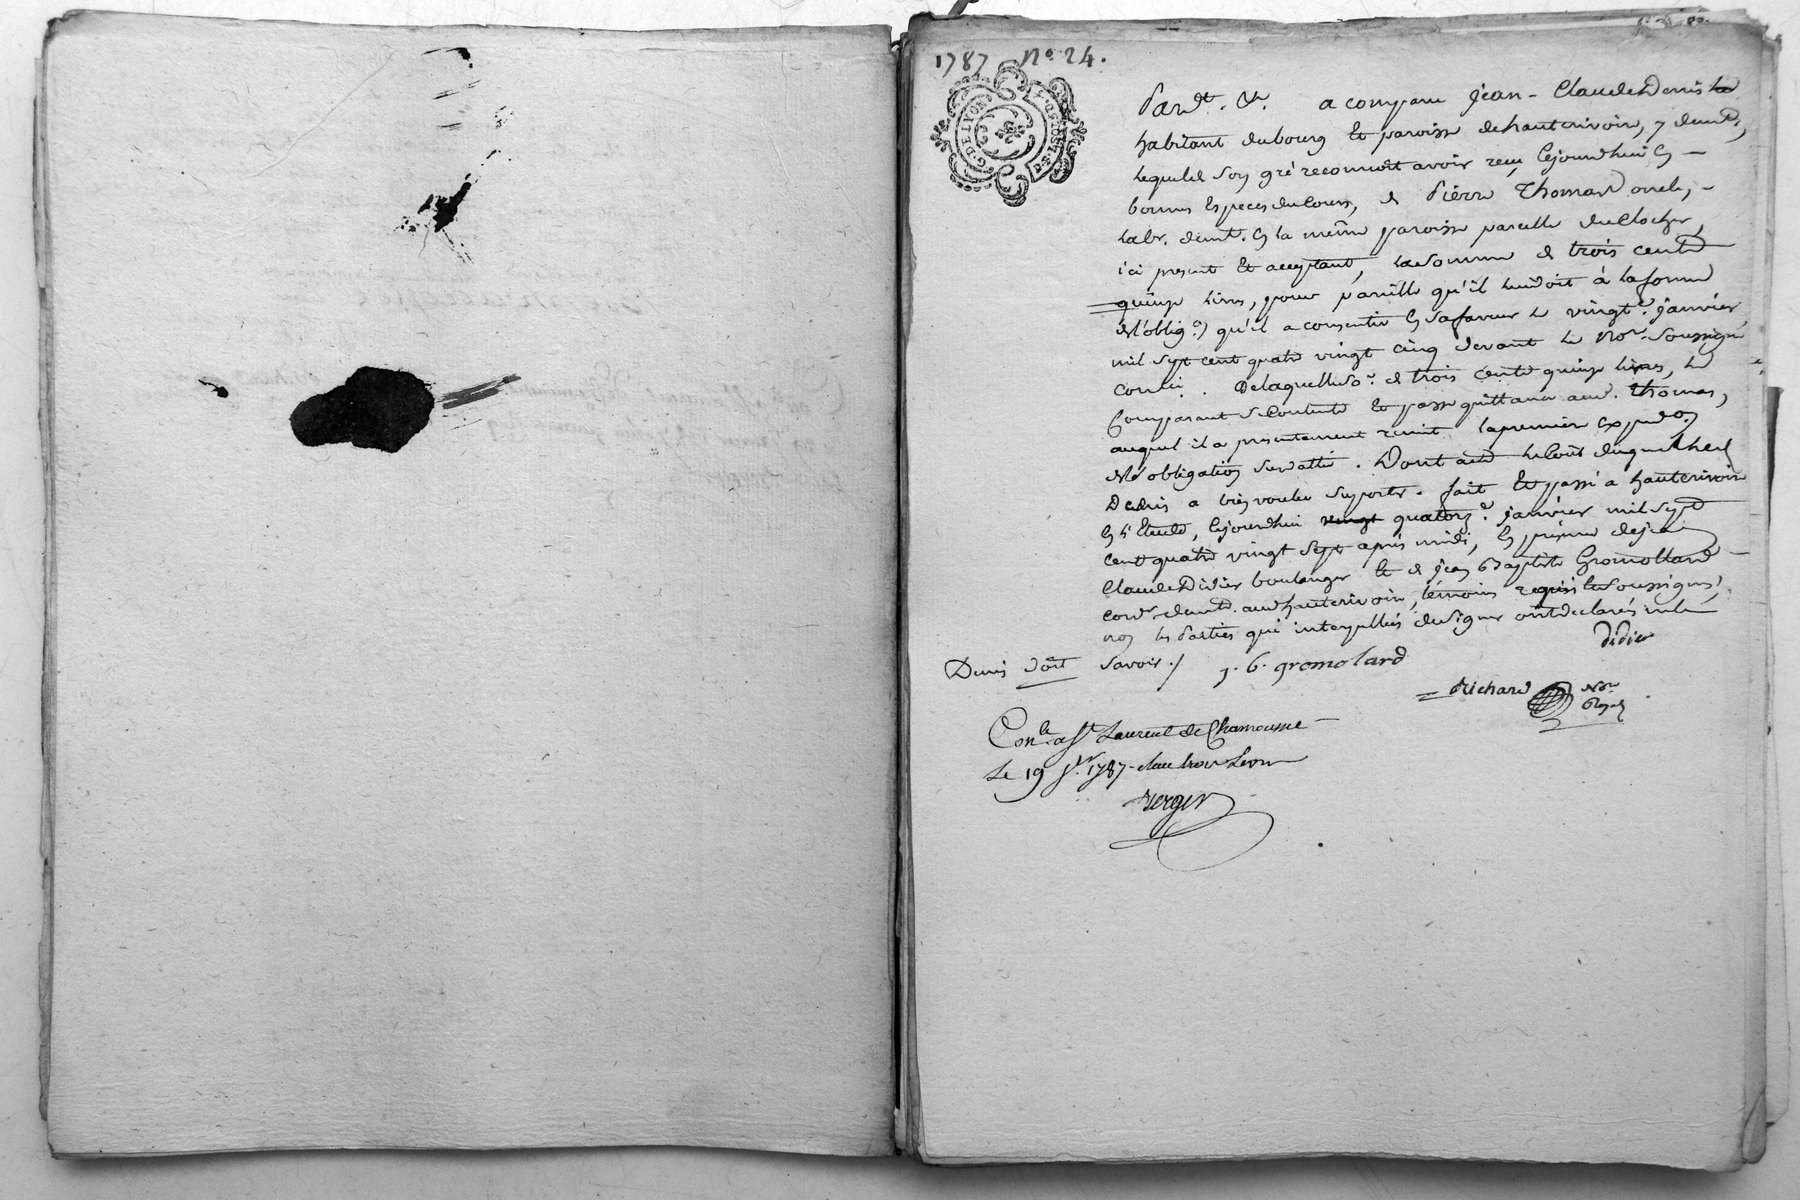 1787 No. 24.
G. DE LYON
Pardt. &c. a comparu jean-Claude Denis
habitant du bourg Et paroisse de hauterivoire, y demt.,
Lequel de son gré reconnoit avoir reçu Cejourdhui En
bonnes Especes du Cours, de Pierre Thomas oncle,
labr. demt. En la même paroisse parcelle du Clocher,
ici present Et acceptant, la somme de trois cent
quinze livres, pour pareille qu'il lui doit à la forme
de l'oblig.on qu'il a consentie En sa faveur le vingt.e janvier
mil sept cent quatre vingt cinq devant le Nore. soussigné
contr. De laquelle so.e de trois Cents quinze livres, le
Comparant se Contente Et passe quittance aud. Thomas,
auquel il a presentement remit la premiere Expedon
de l'obligation surdatte. Dont acte le Cout duquel led
Denis a bien voulu suporter. fait Et passé a hauterivoire
En l'Etude, Cejourdhui vingt quatorz.e janvier mil sept
cent quatre vingt sept après midi, En présence de jean
Claude Didier boulanger Et de jean Baptiste Gromollard
cordr. demts. aud hauterivoire, témoins requis Et soussignés,
non les Parties qui interpellées de signer ont declarés ne le
savoir./ j. b. gromolard
didier
Denis doit
Richard Nore
Royal
Conle. a St Laurent de Chamousset
Le 19 jer. 1787
Verger